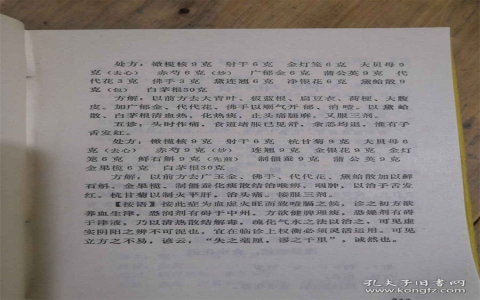 处方：橄榄核9克 射干6克 金灯笼6克 大贝母9
克（去心） 赤芍6克（炒） 广郁金6克 蒲公英9克 代
代花3克 佛手3克 黛连翘9克 净银花6克 黛蛤散
9克（包） 白茅根30克
方解，以前方去大青叶、板蓝根、扁豆衣、荷梗、大腹
皮，加广郁金、代代花、佛手以顺气开郁，消噎。以黛蛤
散、白茅根清血热，化热痰，止头痛腿麻，又服三剂。
五诊，头时作痛，食道堵胀已见舒，余恙均退，惟有子
舌发红。
处方：橄榄核9克 射干6克 杭甘菊9克 大贝母9
克（去心） 赤芍9克（炒） 连翘9克 金银花9克 金灯
笼6克 鲜石斛9克（先煎） 制僵蚕9克 蒲公英9克
金果榄6克 白茅根30克
方解，以前方去广玉金、佛手、代代花、黛蛤散加以鲜
石斛、金果榄、制僵蚕化痰散结治喉痹，咽肿，以治子舌发
红。杭甘菊以制火平肝，治头痛。接服三剂。
【按语】按此症为血虚火旺而致咽肠之候，诊之初方欲
养血生津，恐润剂有碍于中州，方欲健脾理痰，恐燥剂有碍
于津液，乃以清热散结解毒，疏化气水之法以治之，可见虚
实阴阳之辨不可泥也，宜在临诊上权衡必须灵活运用。可见
立方之不易，谚云，“失之毫厘，谬之千里”，诚然也。
孔夫子旧书网
www.kongfz.com